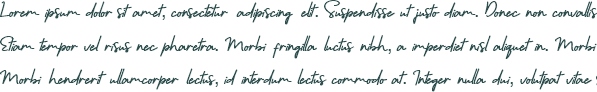 Lorem ipsum dolor sit amet, consectetur adipiscing elit. Suspendisse ut justo diam. Donec non convallis
Etiam tempor vel risus nec pharetra. Morbi fringilla luctus nibh, a imperdiet nisl aliquet in. Morbi
Morbi hendrerit ullamcorper lectus, id interdum lectus commodo at. Integer nulla dui, volutpat vitae